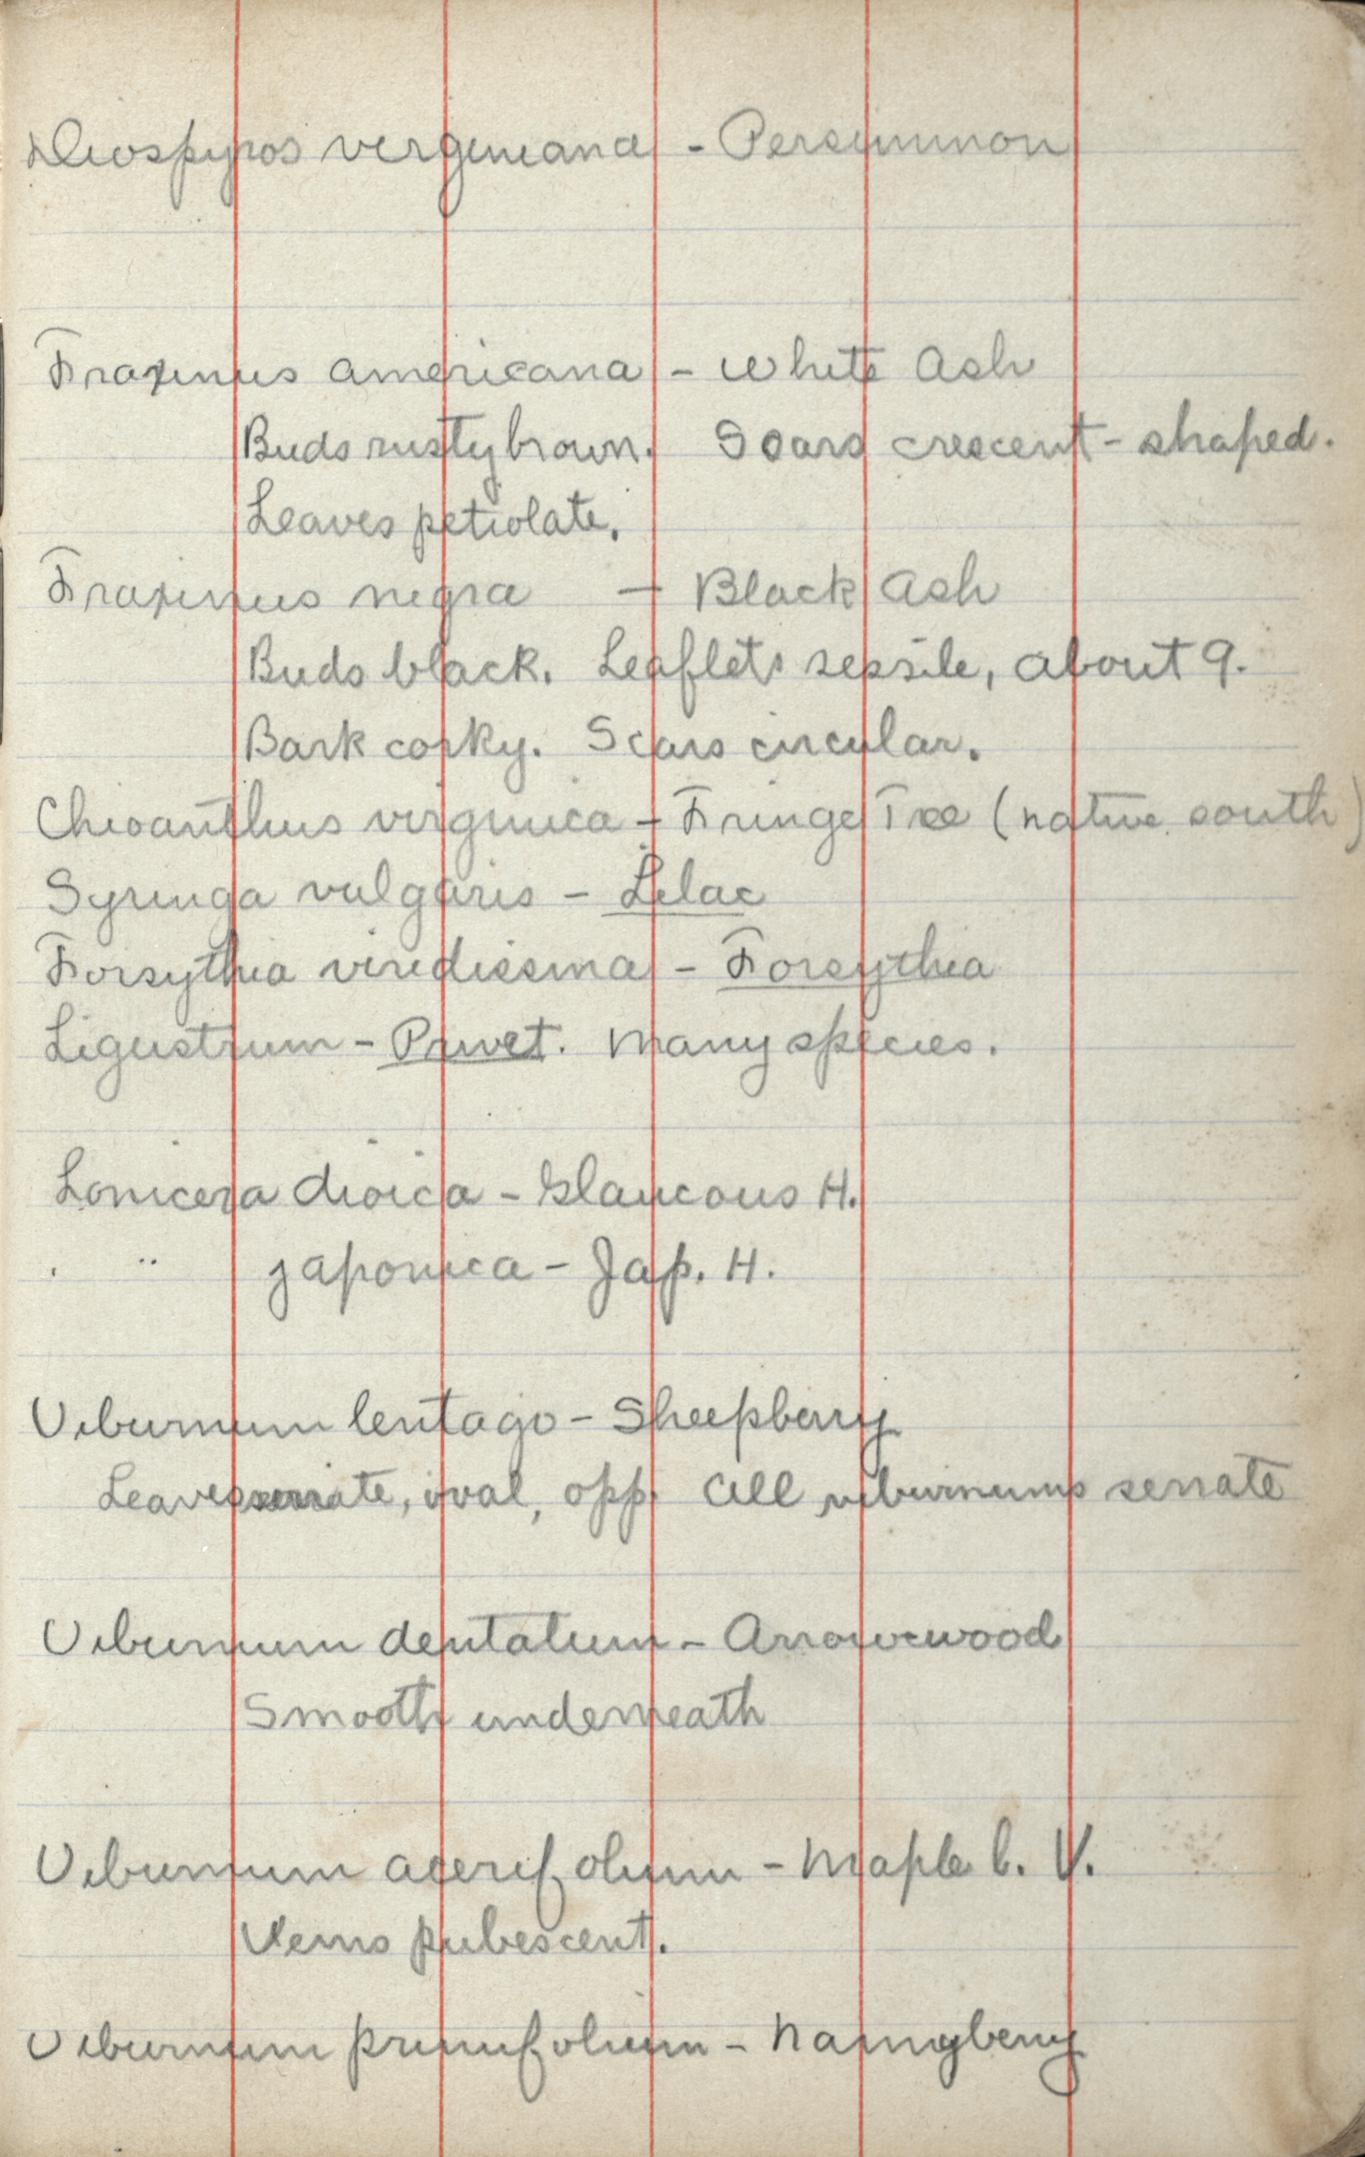 Diospyros virginiana - Persimmon
Fraxinus americana - White Ash
Buds rusty brown. Scars crescent-shaped.
Leaves petiolate.
Fraxinus nigra - Black Ash
Buds black. Leaflets sessile, about 9.
Bark corky. Scars circular.
Chioanthus virginica - Fringe Tree (native south)
Syringa vulgaris - Lilac
Forsythia viridissma - Forsythia
Ligustrum - Privet. Many species.
Lonicera dioica - Glaucous H.
" japonica - Jap. H.
Viburnum lentago - Sheepberry
Leaves serrate, oval, opp. All viburnums serrate
Viburnum dentatum - Arrow-wood
Smooth underneath
Viburnum acerifolium - Maple l. V.
Veins pubescent.
Viburnum prunifolium - Nannyberry